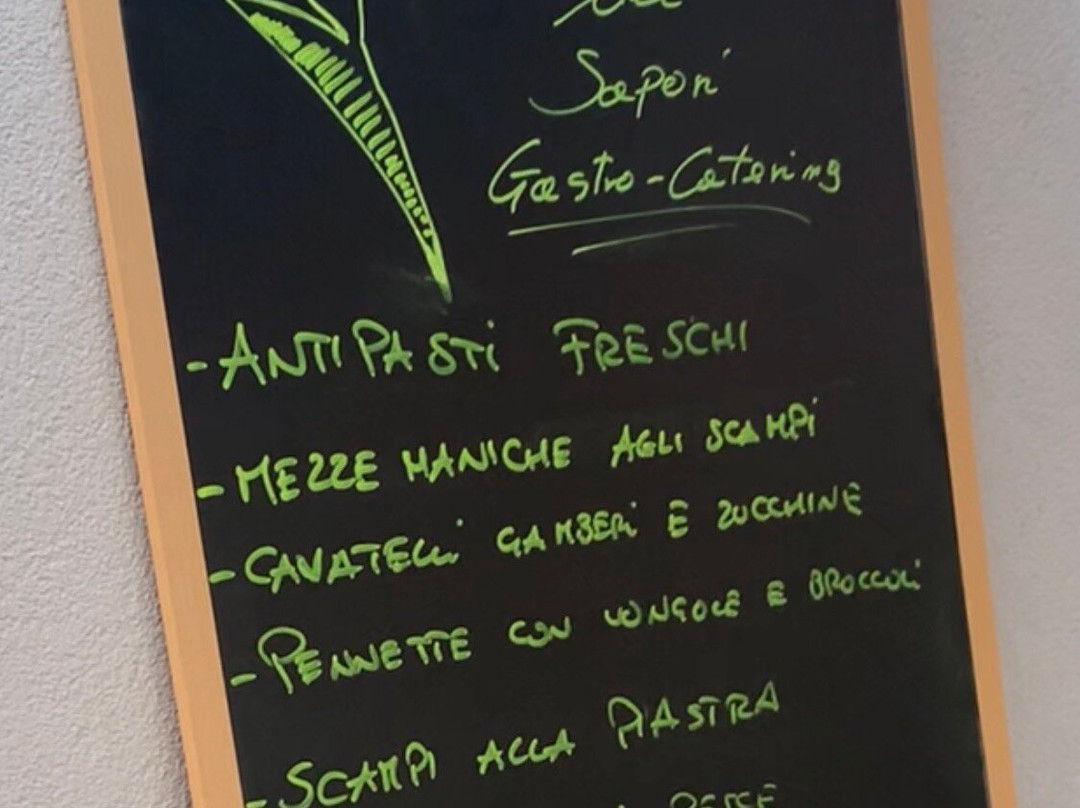 Sapori
Gastro-Catering
- ANTIPASTi FRESCHI
- MEZZE MANICHE AGLI SCAMPi
- CAVATELLi GAMBERi E ZUCCHINE
- PENNETTE CON VONGOLE E BROCCOLi
- SCAMPI ALLA PIASTRA
PESCE